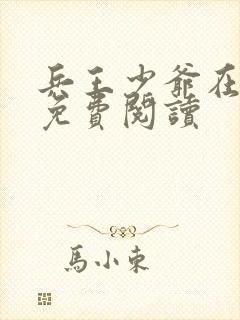 兵王少爺在
免費閱讀
馬小東